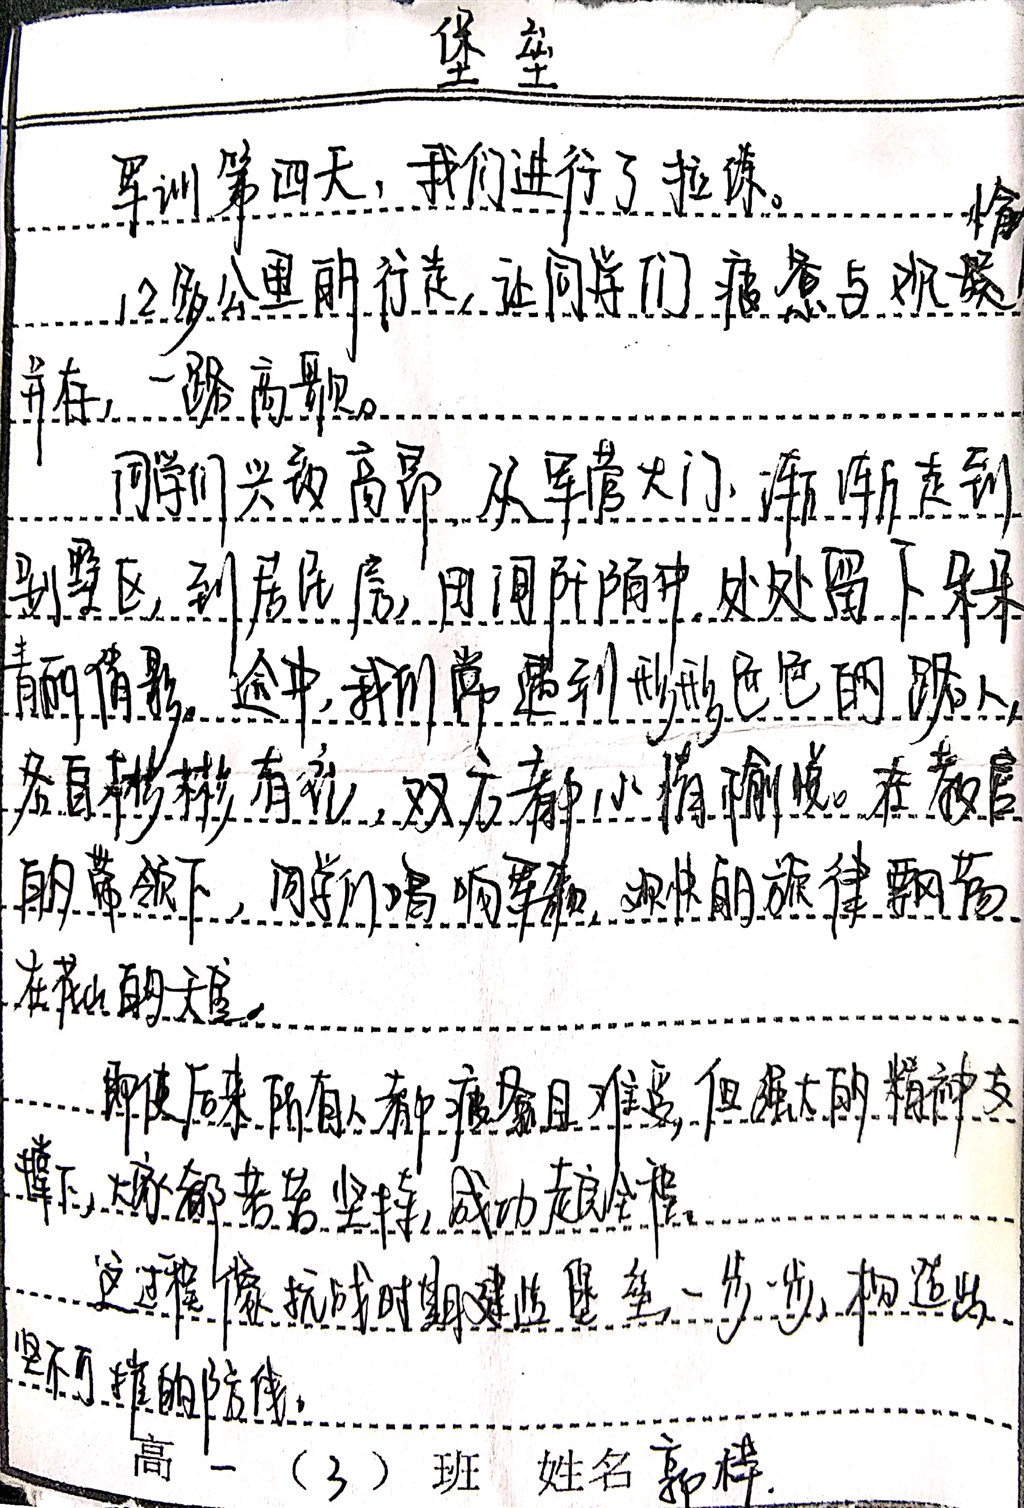 堡垒
军训第四天，我们进行了拉练。
愉
12多公里的行走，让同学们疲惫与欢
并存，一路高歌。
同学们兴致高昂，从军营大门，渐渐走到
别墅区，到居民房，田间阡陌中，处处留下朵朵
青丽倩影。途中，我们常遇到形形色色的路人，
各自彬彬有礼，双方都心情愉悦。在教官
的带领下，同学们唱响军歌，欢快的旋律飘荡
在花山的天空。
即使后来所有人都疲惫且难受，但强大的精神支
撑下，大家都苦苦坚持，成功走完全程。
这过程像抗战时期建造堡垒，一步一步，构造出
坚不可摧的防线。
高一（3）班 姓名 郭